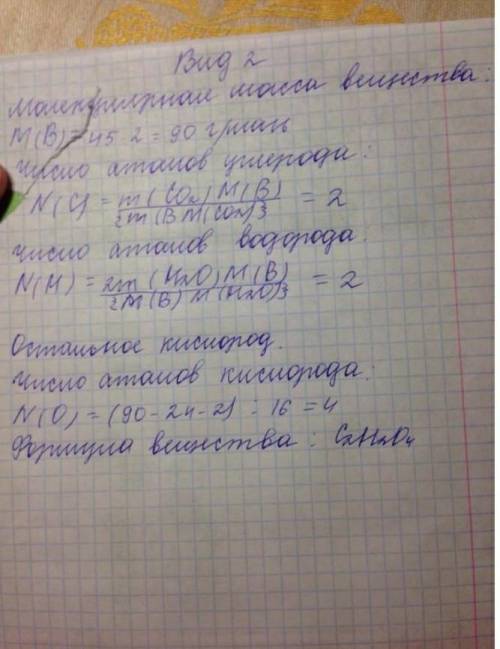 Вид 2
Молекулярная масса вещества:
M(B) = 45 · 2 = 90 г/моль
Число атомов углерода:
N(C) = m(CO₂) M(B) / {m(B M(CO₂)} = 2
Число атомов водорода:
N(H) = 2m(H₂O) M(B) / {M(B) M(H₂O)} = 2
Остальное кислород.
Число атомов кислорода:
N(O) = (90 - 24 - 2) : 16 = 4
Формула вещества: C₂H₂O₄